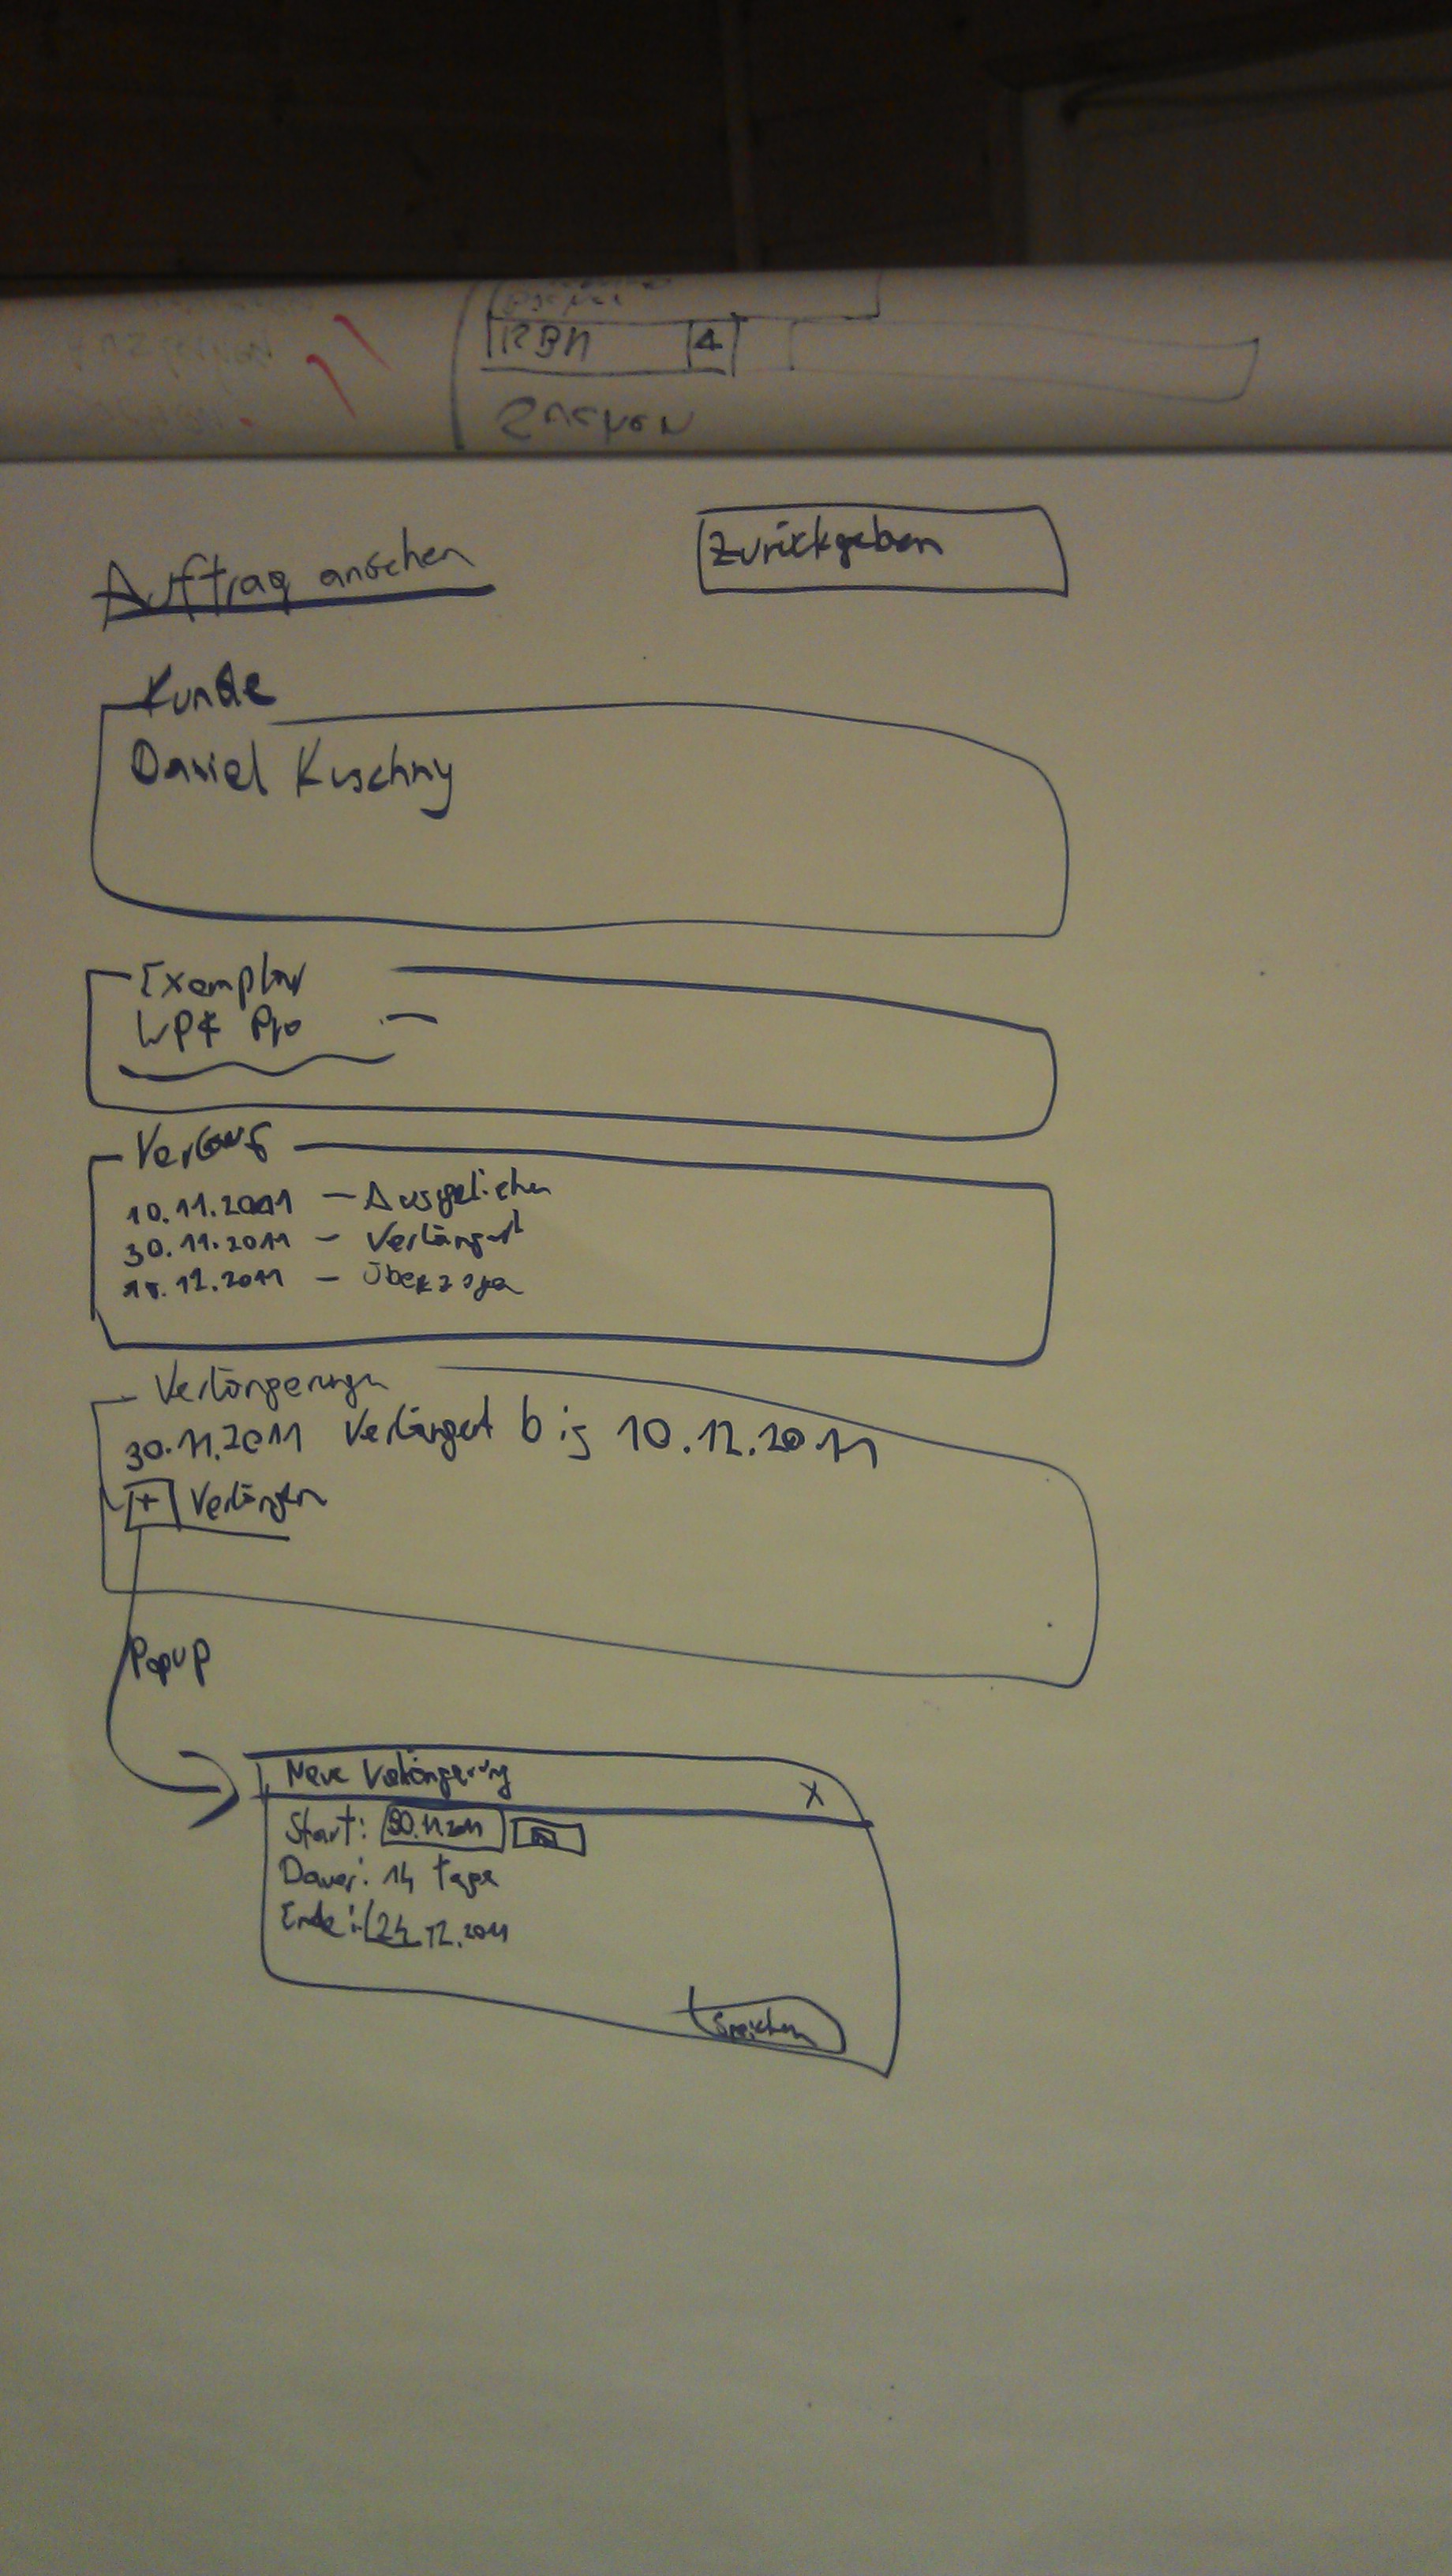 Zurückgeben
Auftrag ansehen
Kunde
Daniel Kuschny
Exemplar
Pro
Verlauf
10.11.2011 – Ausgeliehen
30.11.2011 – Verlängert
.12.2011 – Überzogen
Verlängerungen
30.11.2011 Verlängert bis 10.12.2011
+ Verlängern
Popup
Neue Verlängerung X
Start: 30.11.2011
Dauer: 14 Tage
Ende: 24.12.2011
Speichern